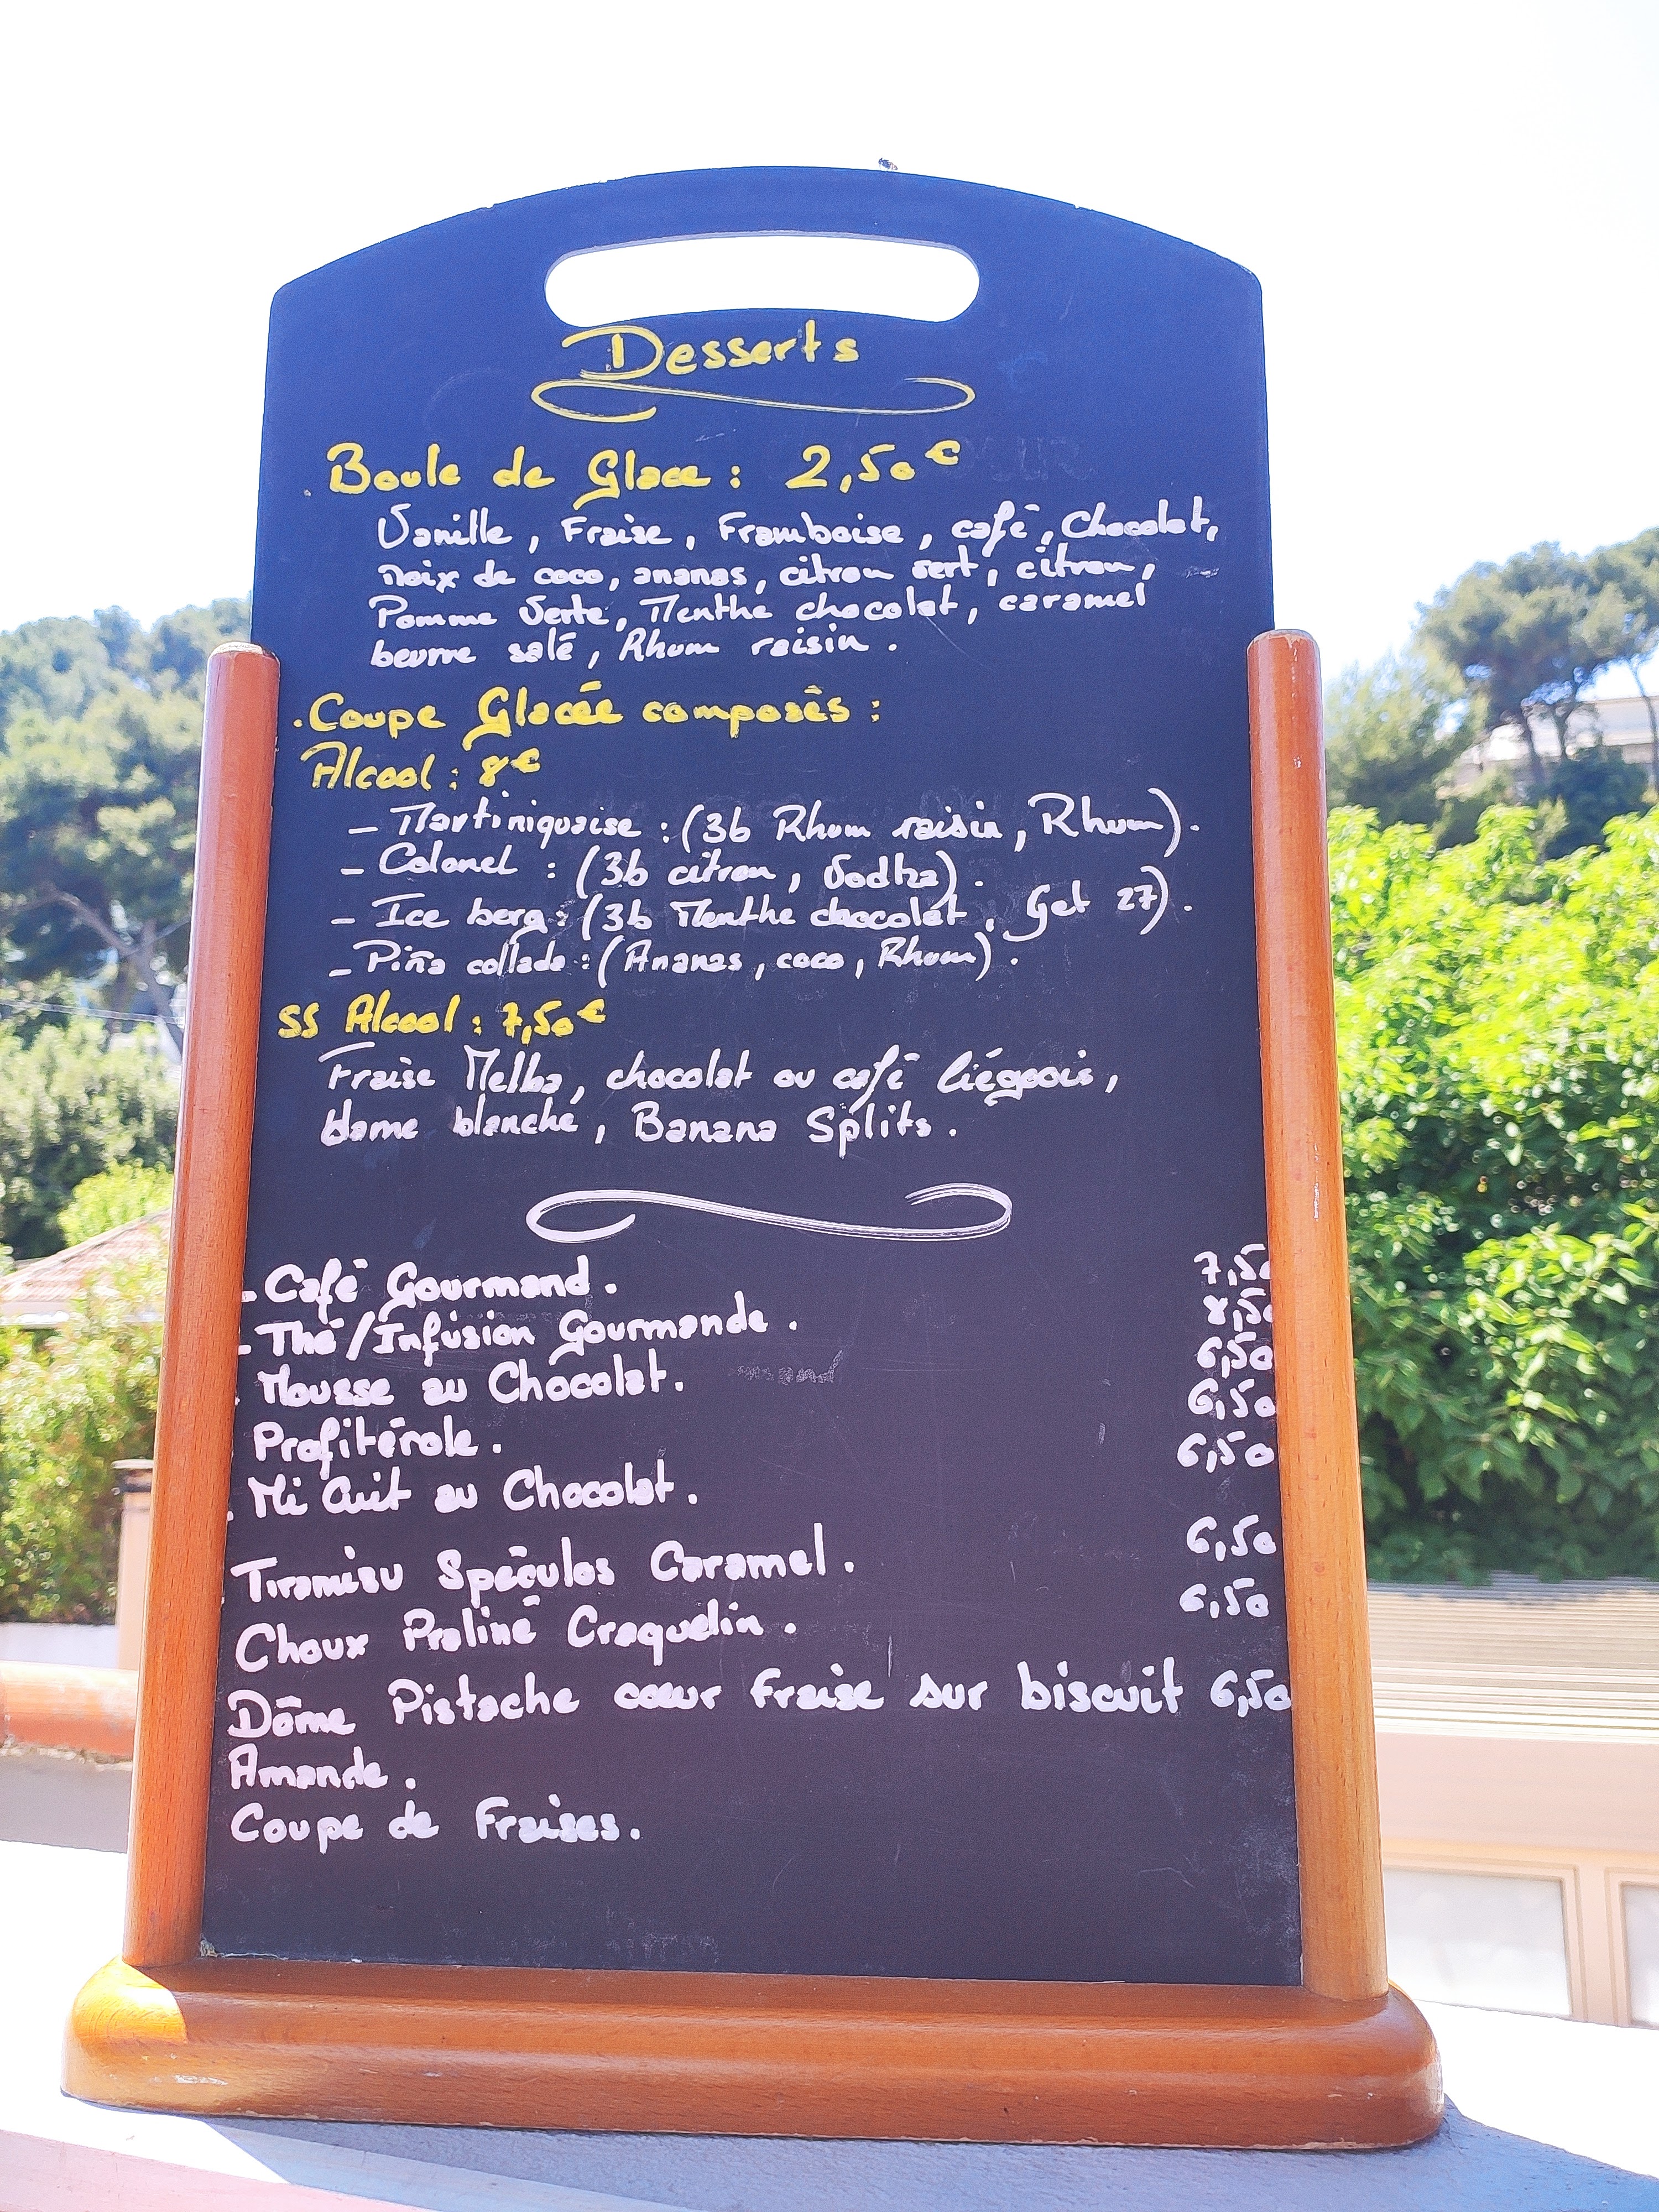 Desserts
Boule de Glace : 2,50€
Vanille, Fraise, Framboise, café, Chocolat,
noix de coco, ananas, citron vert, citron,
Pomme Verte, Menthe chocolat, caramel
beurre salé, Rhum raisin.
.Coupe Glacée composés :
Alcool : 8€
- Martiniquaise : (3b Rhum raisin, Rhum).
- Colonel : (3b citron, Vodka).
- Ice berg : (3b Menthe chocolat, Get 27).
- Piña collada : (Ananas, coco, Rhum).
SS Alcool : 7,50€
Fraise Melba, chocolat ou café liégeois,
dame blanche, Banana Splits.
- Café Gourmand. 7,50
- Thé/Infusion Gourmande. 8,50
. Mousse au Chocolat. 6,50
. Profitérole. 6,50
. Mi Cuit au Chocolat. 6,50
. Tiramisu Spéculos Caramel. 6,50
Choux Praliné Craquelin. 6,50
Dôme Pistache cœur fraise sur biscuit 6,50
Amande.
Coupe de Fraises.